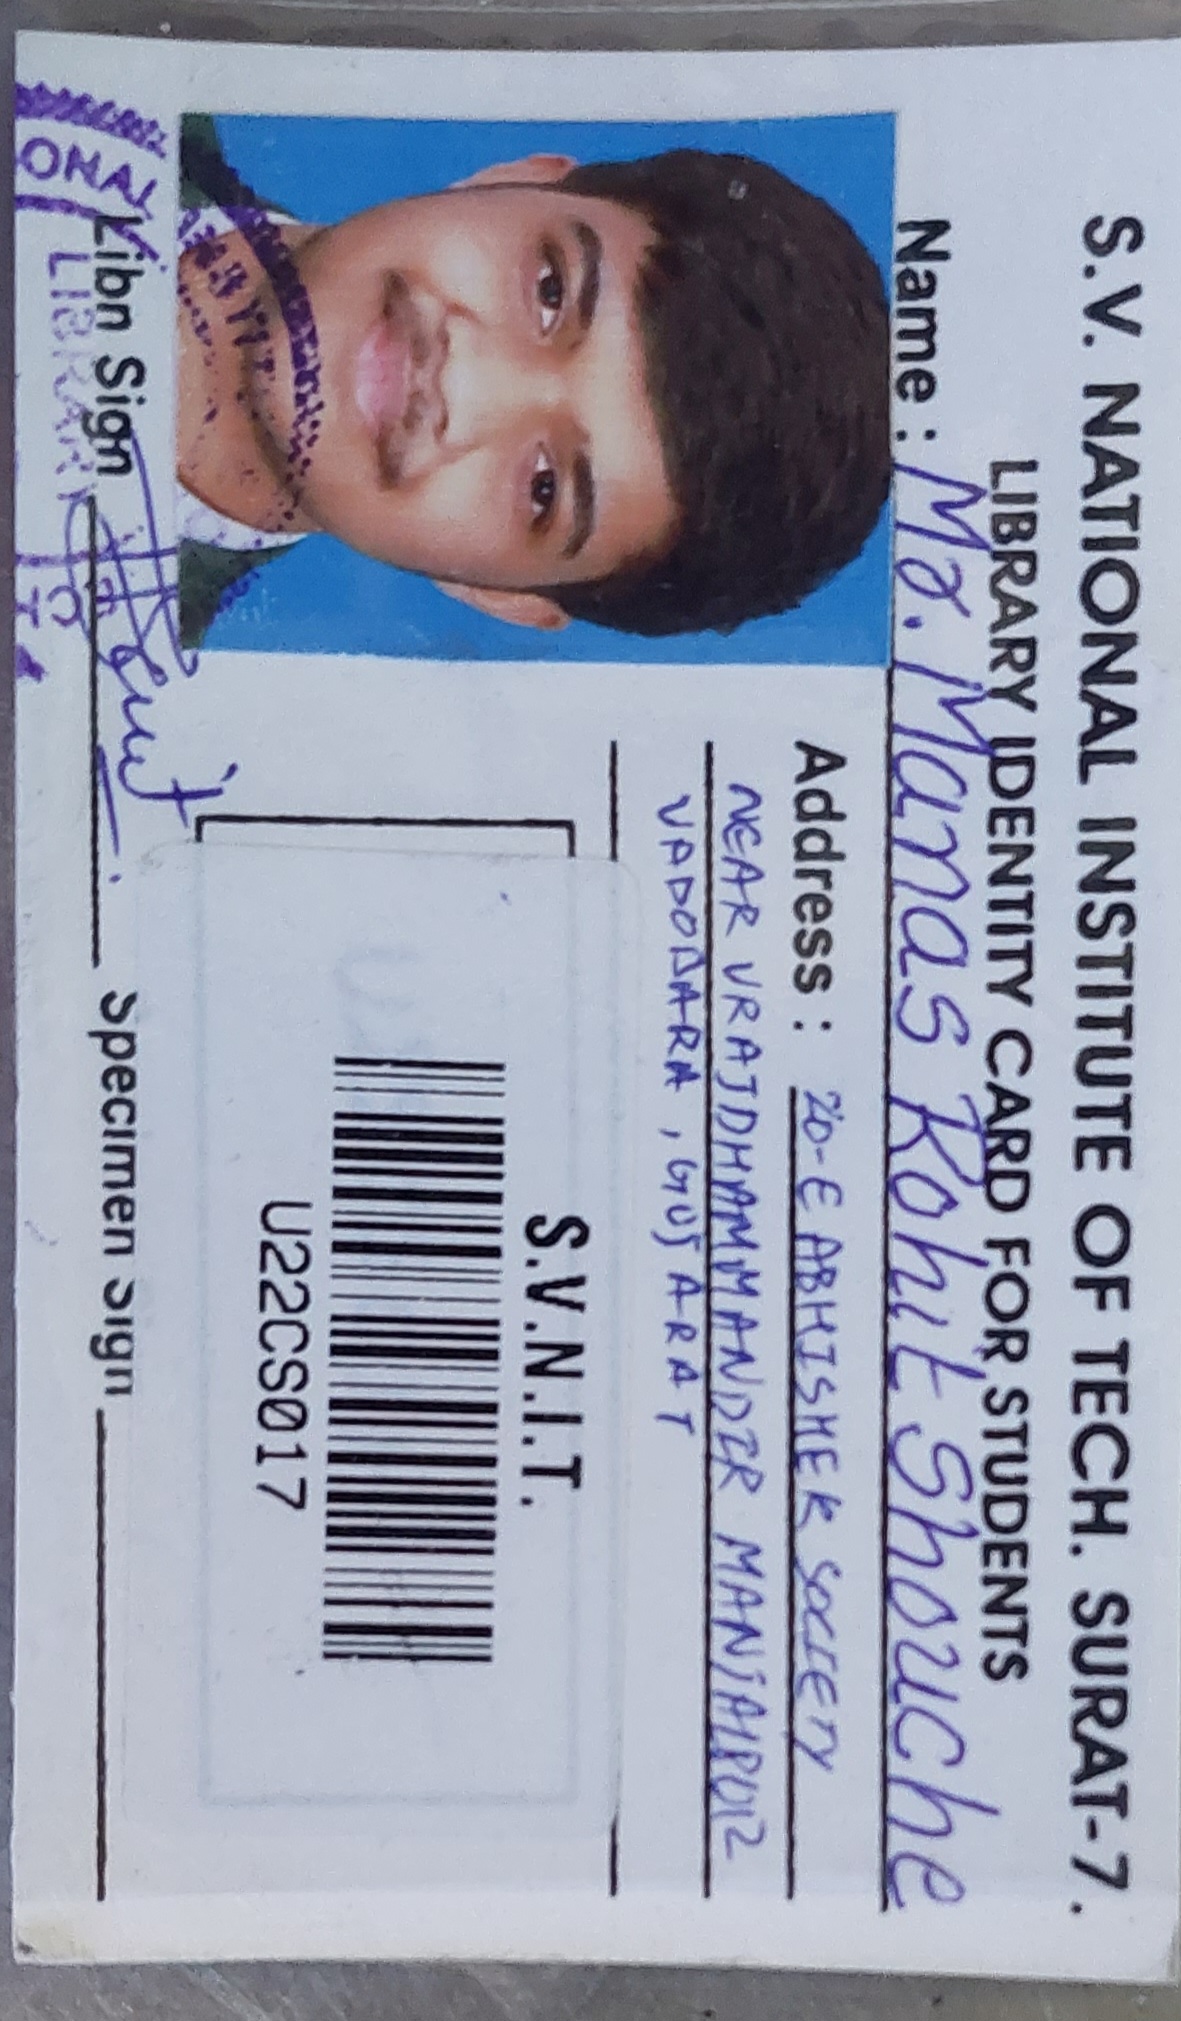 S.V. NATIONAL INSTITUTE OF TECH. SURAT-7.
LIBRARY IDENTITY CARD FOR STUDENTS
Name : Mr. Manas Rohit Shouche
Address : 20-E ABHISHEK SOCIETY
NEAR VRAJDHAM MANDIR MANJALPUR
VADODARA, GUJARAT
S.V.N.I.T.
U22CS017
Libn Sign
Specimen Sign
LIBRARY